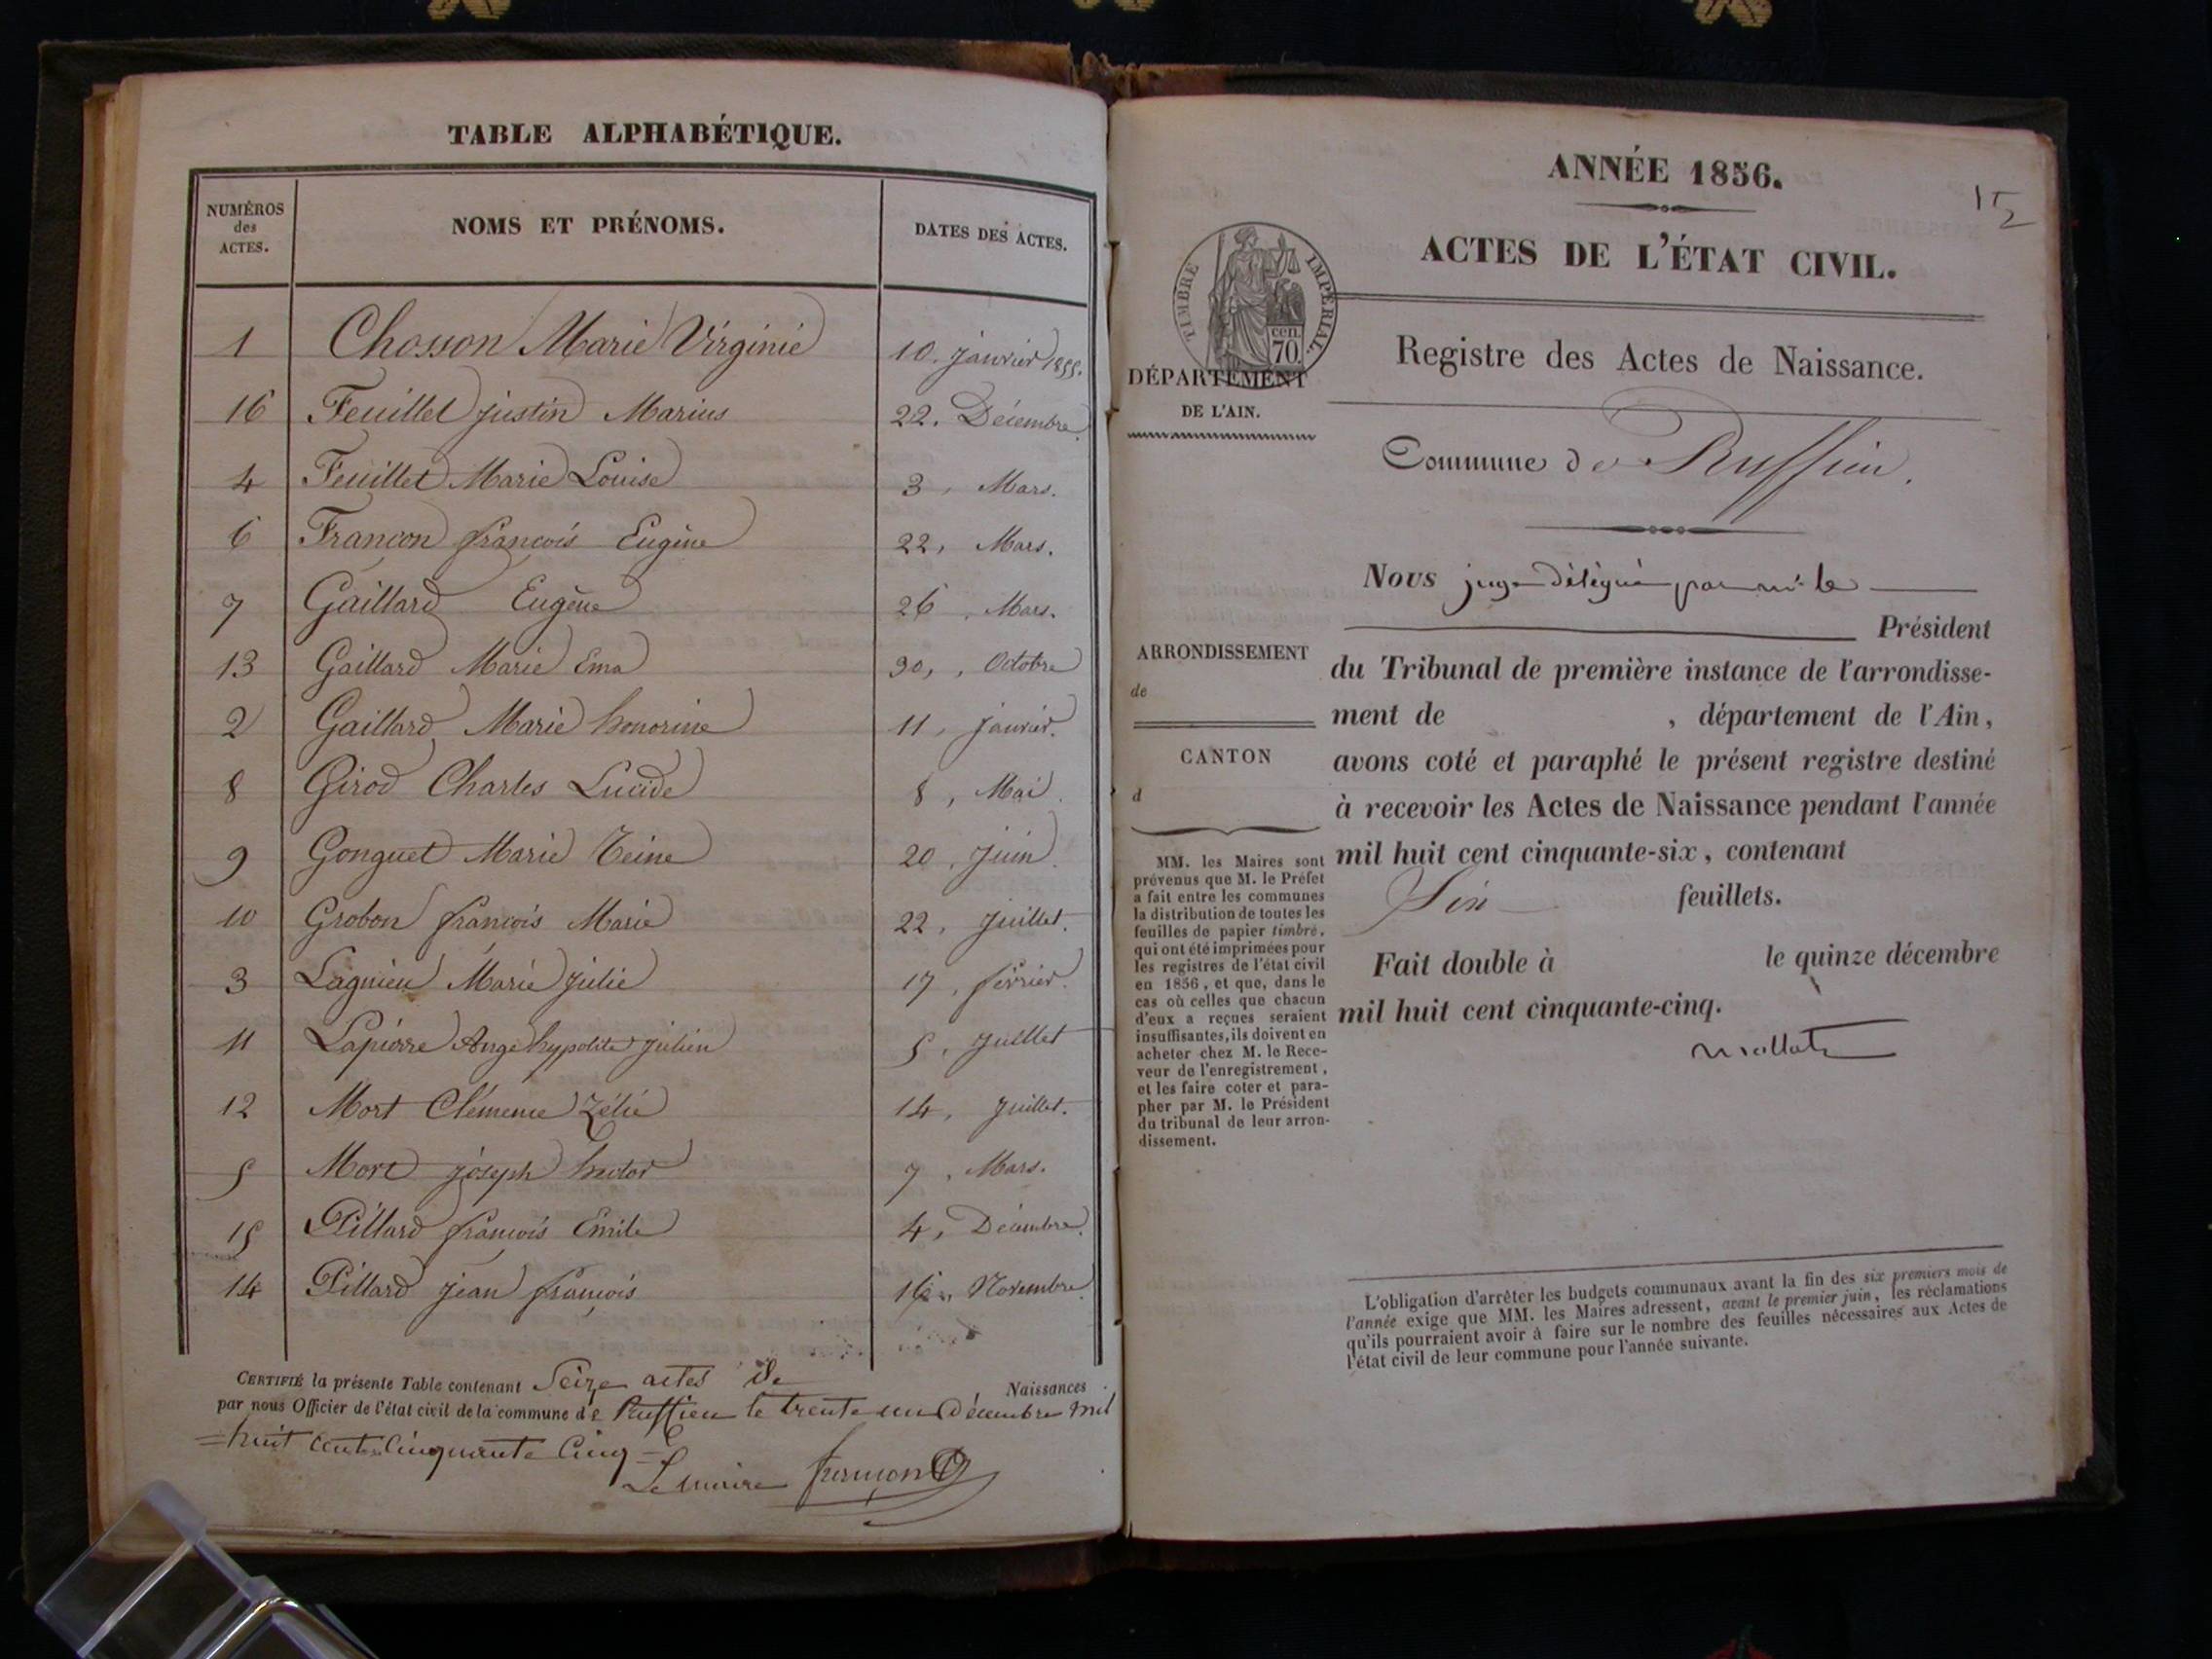 TABLE ALPHABÉTIQUE.
NUMÉROS des ACTES. NOMS ET PRÉNOMS. DATES DES ACTES.
1 Chosson Marie Virginie 10. janvier 1855.
16 Feuillet justin Marius 22. Décembre.
4 Feuillet Marie Louise 3, Mars.
6 Françon françois Eugène 22, Mars.
7 Gaillard Eugène 26, Mars.
13 Gaillard Marie Ema 30,, Octobre
2 Gaillard Marie honorine 11, janvier.
8 Girod Charles Lucide 8, Mai.
9 Gonguet Marie 20, juin.
10 Grobon françois Marie 22, juillet.
3 Lagnieu Marie julie 17, février.
11 Lapierre Ange hypolite julien 5, juillet
12 Mort Clémence Zélie 14, juillet.
5 Mort joseph hector 7, Mars.
15 Pillard françois Emile 4, Décembre.
14 Pillard jean françois 16,, Novembre.
CERTIFIÉ la présente Table contenant Seize actes de Naissances
par nous Officier de l'état civil de la commune de Ruffieu le trente un Décembre mil
=huit cent cinquante cinq=
Le maire
ANNÉE 1856.
ACTES DE L'ÉTAT CIVIL.
TIMBRE IMPÉRIAL.
cen.
70.
Registre des Actes de Naissance.
DÉPARTEMENT
DE L'AIN.
Commune de Ruffieu.
Nous juge délégué par mr le
Président
du Tribunal de première instance de l'arrondisse-
ment de , département de l'Ain,
avons coté et paraphé le présent registre destiné
à recevoir les Actes de Naissance pendant l'année
mil huit cent cinquante-six, contenant
Six feuillets.
Fait double à le quinze décembre
mil huit cent cinquante-cinq.
ARRONDISSEMENT
de
CANTON
d
MM. les Maires sont
prévenus que M. le Préfet
a fait entre les communes
la distribution de toutes les
feuilles de papier timbré,
qui ont été imprimées pour
les registres de l'état civil
en 1856, et que, dans le
cas où celles que chacun
d'eux a reçues seraient
insuffisantes, ils doivent en
acheter chez M. le Rece-
veur de l'enregistrement,
et les faire coter et para-
pher par M. le Président
du tribunal de leur arron-
dissement.
L'obligation d'arrêter les budgets communaux avant la fin des six premiers mois de
l'année exige que MM. les Maires adressent, avant le premier juin, les réclamations
qu'ils pourraient avoir à faire sur le nombre des feuilles nécessaires aux Actes de
l'état civil de leur commune pour l'année suivante.